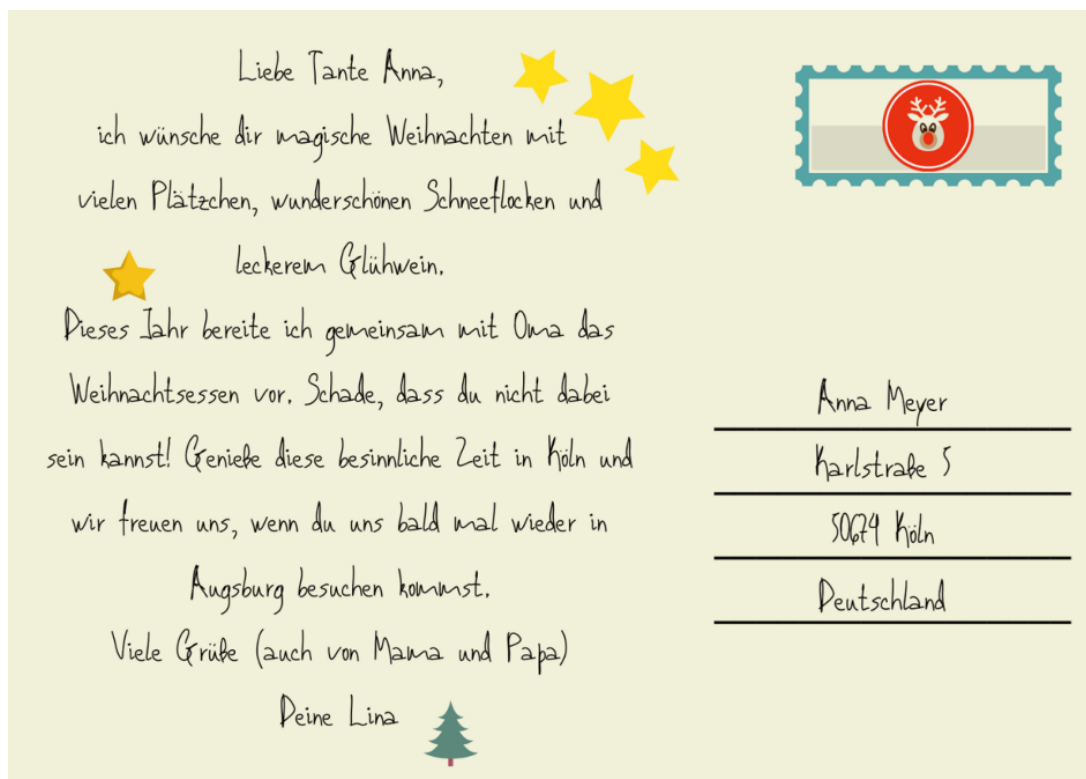 Liebe Tante Anna,
ich wünsche dir magische Weihnachten mit
vielen Plätzchen, wunderschönen Schneeflocken und
leckerem Glühwein.
Dieses Jahr bereite ich gemeinsam mit Oma das
Weihnachtsessen vor. Schade, dass du nicht dabei
sein kannst! Genieße diese besinnliche Zeit in Köln und
wir freuen uns, wenn du uns bald mal wieder in
Augsburg besuchen kommst.
Viele Grüße (auch von Mama und Papa)
Deine Lina
Anna Meyer
Karlstraße 5
50674 Köln
Deutschland